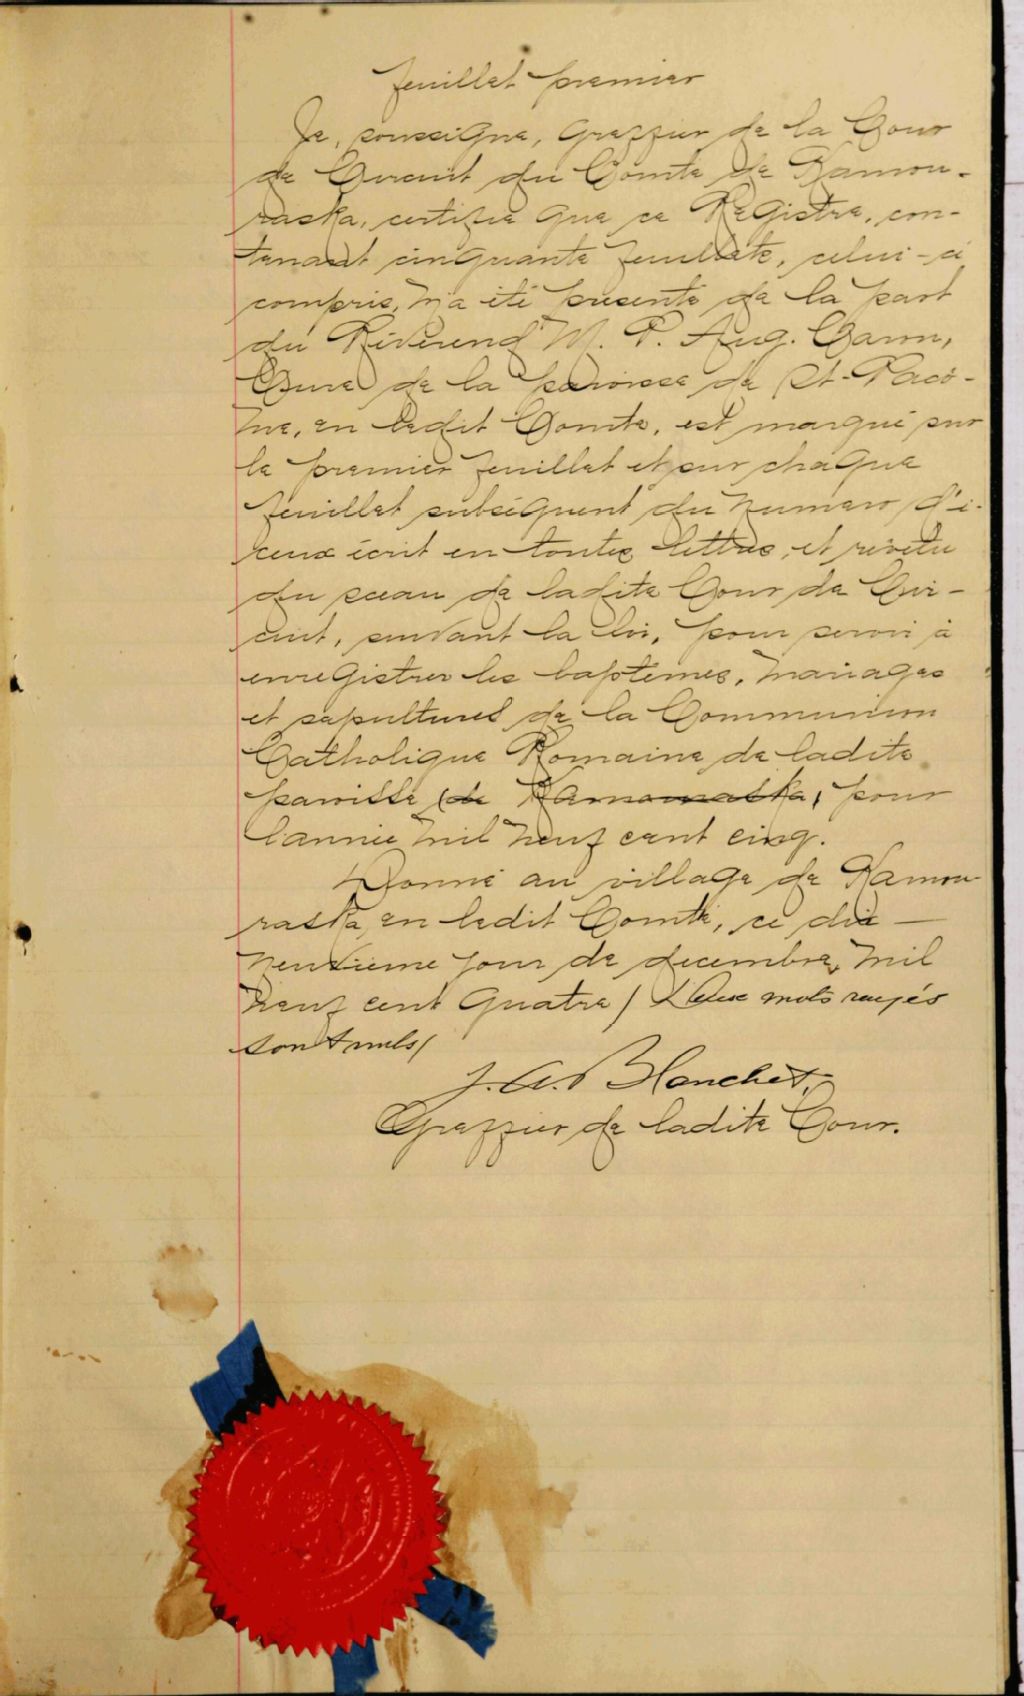 feuillet premier
Je, soussigné, Greffier de la Cour
de Circuit du Comté de Kamou-
raska, certifie que ce Registre, con-
tenant cinquante feuillets, celui-ci
compris, m'a été présenté de la part
du Révérend M. P. Aug.
Curé de la paroisse de St-Pacô-
me, en ledit Comté, est marqué sur
le premier feuillet et sur chaque
feuillet subséquent du numéro d'i-
ceux écrit en toutes lettres, et revêtu
du sceau de ladite Cour de Cir-
cuit, suivant la loi, pour servir à
enregistrer les baptêmes, mariages
et sépultures de la Communion
Catholique Romaine de ladite
paroisse (de Kamouraska, pour
l'année mil neuf cent cinq.
Donné au village de Kamou-
raska, en ledit Comté, ce dix-
neuvième jour de décembre, mil
neuf cent quatre / Deux mots rayés
sont nuls /
J. A. Blanchet,
Greffier de ladite Cour.